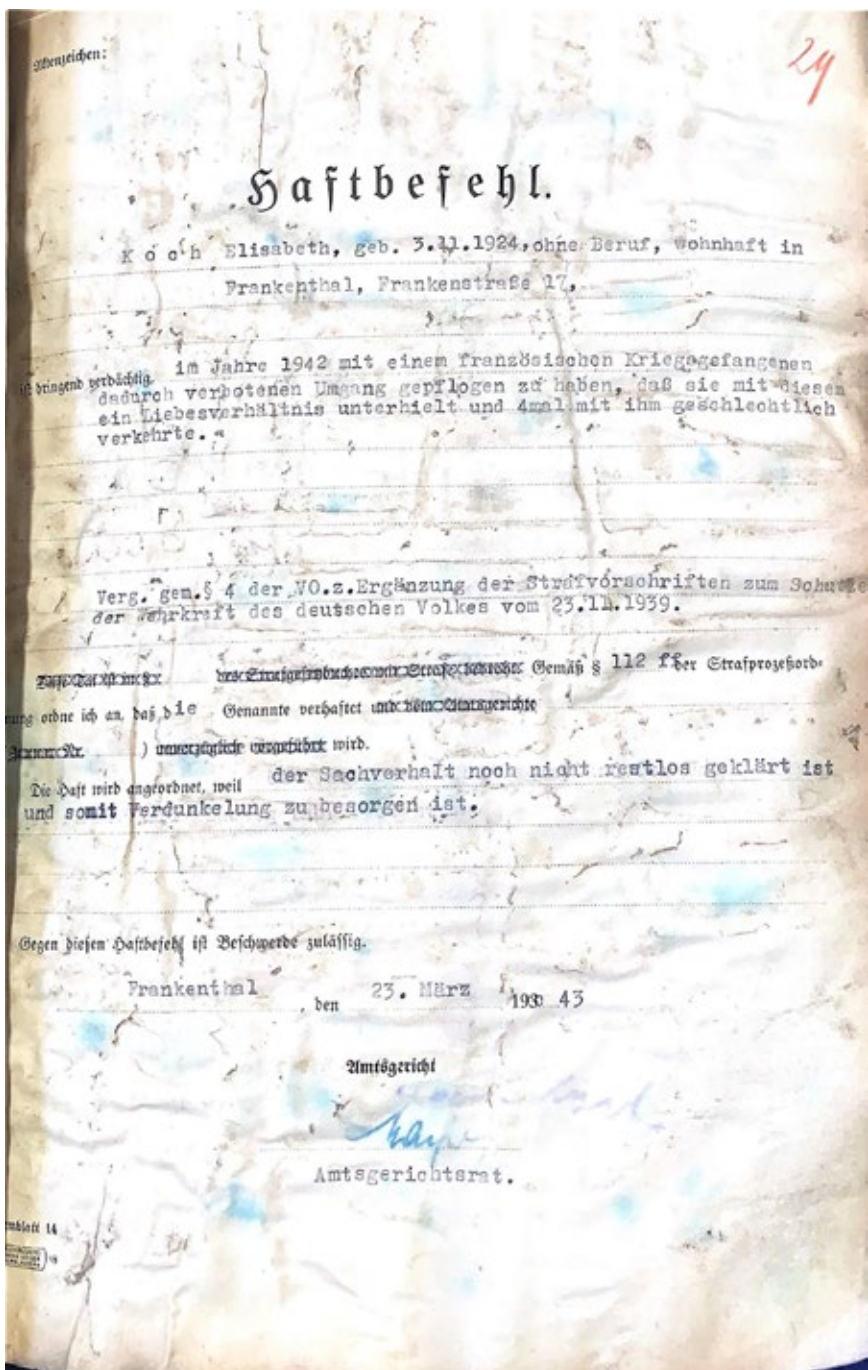 Aktenzeichen:
24
Haftbefehl.
Koch Elisabeth, geb. 3.11.1924, ohne Beruf, wohnhaft in
Frankenthal, Frankenstraße 17,
ist dringend verdächtig, im Jahre 1942 mit einem französischen Kriegsgefangenen
dadurch verbotenen Umgang gepflogen zu haben, daß sie mit diesem
ein Liebesverhältnis unterhielt und 4mal mit ihm geschlechtlich
verkehrte.
Verg. gem. § 4 der VO.z.Ergänzung der Strafvorschriften zum Schutze
der Wehrkraft des deutschen Volkes vom 23.11.1939.
Gemäß § 112 ff der Strafprozeßord-
nung ordne ich an, daß die Genannte verhaftet und dem Amtsgerichte
) unverzüglich vorgeführt wird.
Die Haft wird angeordnet, weil der Sachverhalt noch nicht restlos geklärt ist
und somit Verdunkelung zu besorgen ist.
Gegen diesen Haftbefehl ist Beschwerde zulässig.
Frankenthal, den 23. März 1943
Amtsgericht
Amtsgerichtsrat.
mblatt 14